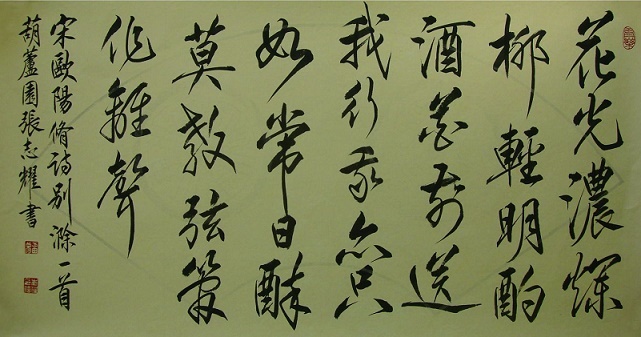 花光濃爛
柳輕明酌
酒花前送
我行我亦只
如常日醉
莫教弦管
作離聲
宋歐陽脩詩別滁一首
葫蘆園張志耀書